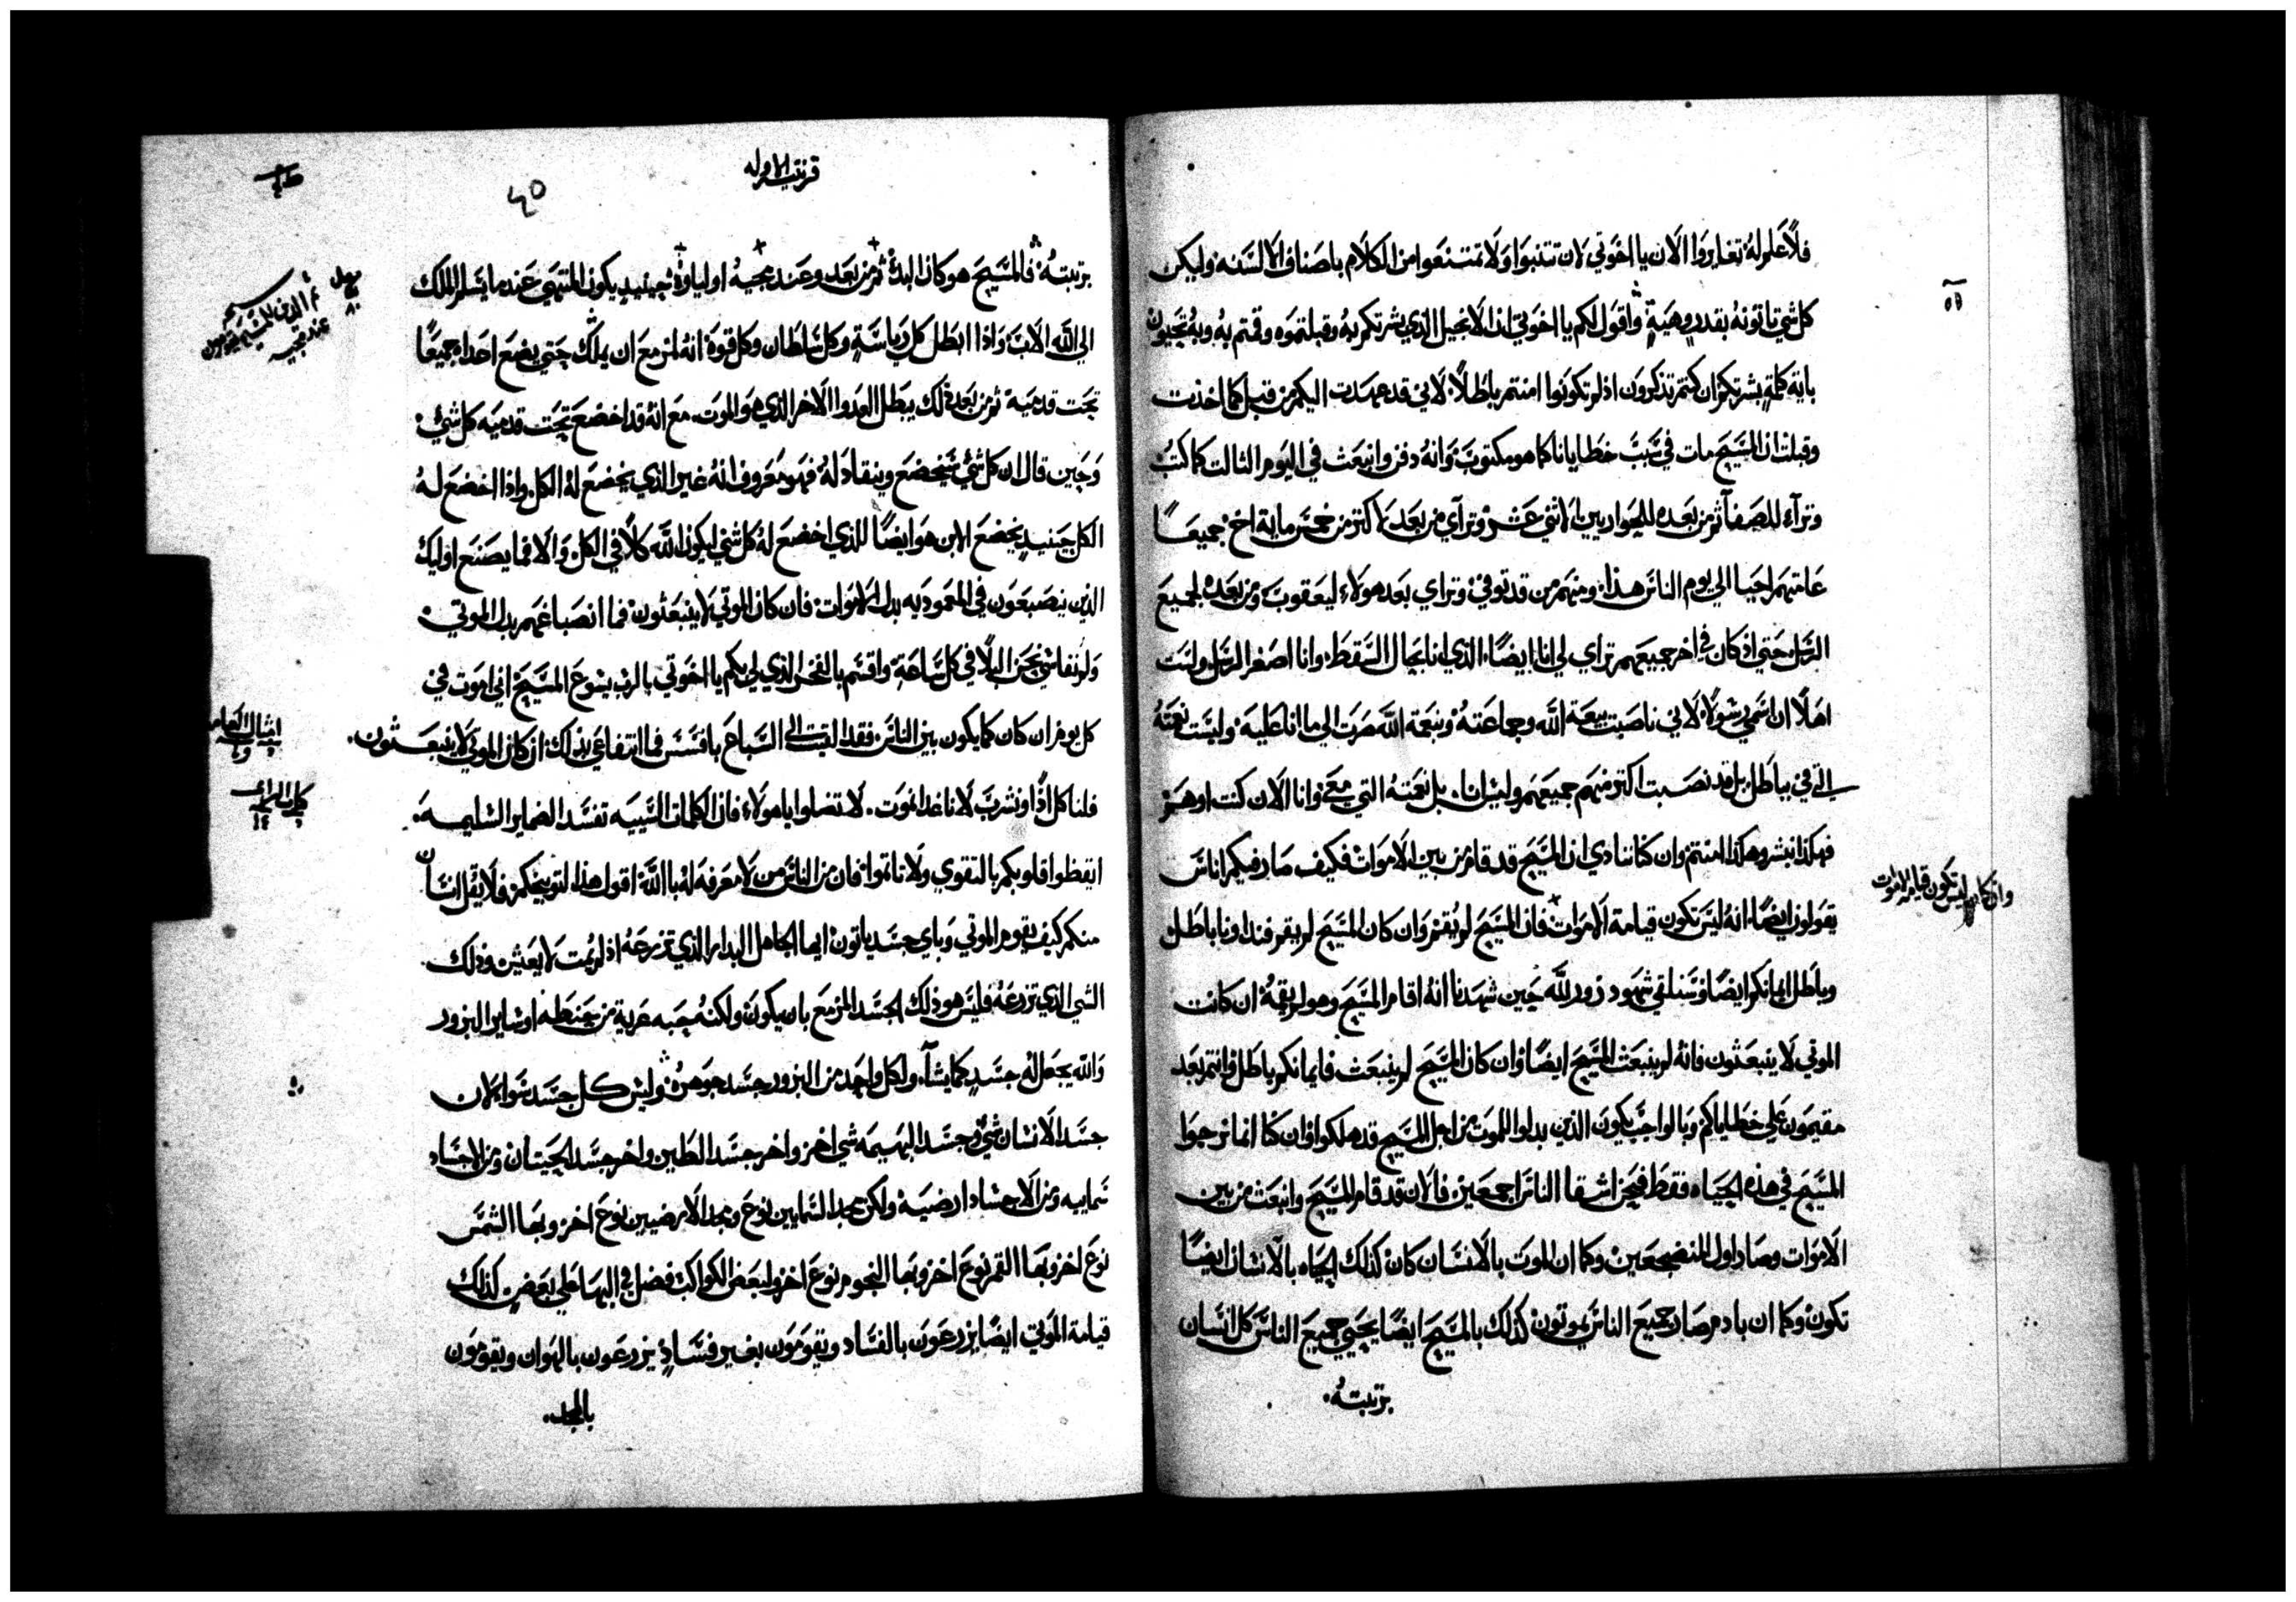 فلا علم له تغايروا الان يا اخوتي لان تتنبوا ولا تمتنعوا من الكلام باصناف الالسنه وليكن
كل شي تاتونه بقدر وهيبة واقول لكم يا اخوتي ان الانجيل الذي بشرتكم به وقبلتموه وقمتم به وبه تحيون
باية كلمة بشرتكم ان كنتم تذكرون اذ لم تكونوا امنتم باطلا لاني قد عهدت اليكم من قبل كما اخذت
وقبلت ان المسيح مات في سبب خطايانا كما هو مكتوب وانه دفن وانبعث في اليوم الثالت كما كتب
وتراءا للصفا ثم من بعده للحواريين الاثني عشر وتراي من بعد لاكتر من خمس ماية اخ جميعا
عامتهم احيا الي يوم الناس هذا ومنهم من قد توفي وتراي بعد هولاء ليعقوب ومن بعده لجميع
الرسل حتي اذ كان في اخر جميعهم تراي لي انا ايضا الذي انا بحال السقط وانا اصغر الرسل ولست
اهلا ان اسمي رسولا لاني ناصبت بيعة الله وجماعته وبنعمة الله صرت الي ما انا عليه وليست نعمته
التي في باطل بل قد نصبت اكتر منهم جميعهم وليس انا بل نعمته التي معي وانا الان كنت او هم
فهكذا نبشر وهكذا امنتم وان كنا ننادي ان المسيح قد قام من بين الاموات فكيف صار فيكم اناس
يقولون ايضا انه ليس تكون قيامة الاموات فان المسيح لم يقم وان كان المسيح لم يقم فنداونا باطل
وباطل ايمانكم ايضا وسنلقي شهود زور لله حين شهدنا انه اقام المسيح وهو لم يقمه ان كانت
الموتي لا ينبعثون فانه لم ينبعث المسيح ايضا وان كان المسيح لم ينبعث فايمانكم باطل وانتم بعد
مقيمون علي خطاياكم وبالواجب يكون الذين بدلوا للموت من اجل المسيح قد هلكوا وان كنا انما نرجوا
المسيح في هذه الحياه فقط فنحن اشقا الناس اجمعين فالان قد قام المسيح وانبعث من بين
الاموات وصار اول المنضجعين وكما ان الموت بالانسان كان كذلك الحياه بالانسان ايضا
تكون وكما ان بادم صار جميع الناس يموتون كذلك بالمسيح ايضا يحيي جميع الناس كل انسان
برتبته
وان كان ليس تكون قيامة الاموات
قرنتيه الاوله
٤٥
برتبته فالمسيح هو كان البدؤ ثم من بعد وعند مجيه اولياوه حينيد يكون المنتهي عند ما يسلم الملك
الي الله الاب واذا ابطل كل رياسة وكل سلطان وكل قوة انه لمزمع ان يملك حتي يضع اعداه جميعا
تحت قدميه ثم من بعد ذلك يبطل العدوا الاخر الذي هو الموت مع انه قد اخضع تحت قدميه كل شي
وحين قال ان كل شي سيخضع وينقاد له فهو معروف انه غير الذي يخضع له الكل واذا اخضع له
الكل حينيد يخضع الابن هو ايضا للذي اخضع له كل شي ليكون الله كلا في الكل والا فما يصنع اوليك
الذين ينصبغون في المعموديه بدل الاموات فان كان الموتي لا ينبعثون فما انصباغهم بدل الموتي
ولم نقاسي نحن البلا في كل ساعة واقسم بالفخر الذي لي بكم يا اخوتي بالرب يسوع المسيح اني اموت في
كل يوم ان كان كما يكون بين الناس فقد القيت الي السباع بافسس فما انتفاعي بذلك ان كان الموتي لا ينبعثون
فلناكل اذا ونشرب لانا غدا نموت لا تضلوا يا هولاء فان الكلمات السيية تفسد الضماير السليمه
ايقظوا قلوبكم بالتقوي ولا تاتموا فان من الناس من لا معرفه له بالله اقول هذا لتوبيخكم فلا يقل انسان
منكم كيف يقوم الموتي وباي جسد ياتون ايها الجاهل البدار الذي تزرعه اذ لم يمت لا يعيش وذلك
الشي الذي تزرعه فليس هو ذلك الجسد المزمع بان يكون ولكنه حبه عرية من حنطه او ساير البزور
والله يجعل له جسد كما يشاء ولكل واحد من البزور جسد جوهره وليس كل جسد سوا لان
جسد الانسان شي وجسد البهيمه شي اخر واخر جسد الطير واخر جسد الحيتان ومن الاجساد
سماييه ومن الاجساد ارضيه ولكن مجد السمايين نوع ومجد الارضيين نوع اخر وبها الشمس
نوع اخر وبها القمر نوع اخر وبها النجوم نوع اخر ولبعض الكواكب فضل في البها علي بعض كذلك
قيامة الموتي ايضا يزرعون بالفساد ويقومون بغير فساد يزرعون بالهوان ويقومون
بالمجد